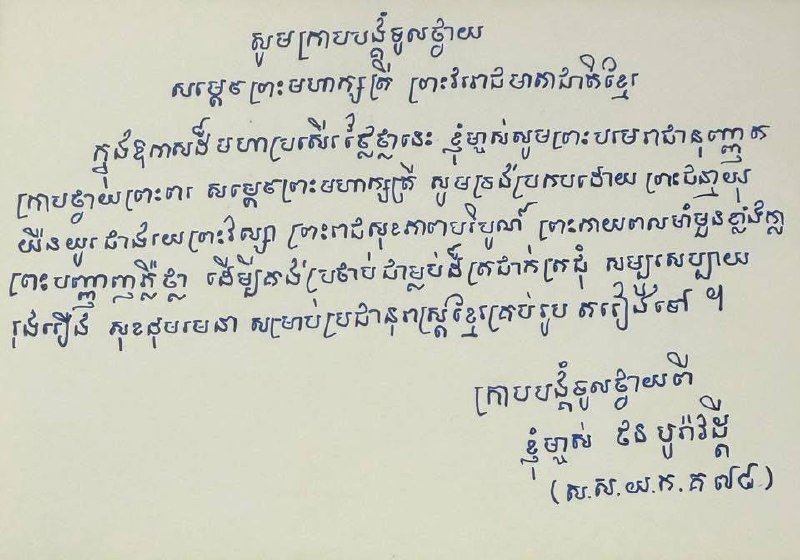 សូមក្រាបបង្គំទូលថ្វាយ
សម្ដេចព្រះមហាក្សត្រី ព្រះវររាជមាតាជាតិខ្មែរ
ក្នុងឱកាសដ៏មហាប្រសើរថ្លៃថ្លានេះ ខ្ញុំម្ចាស់សូមព្រះបរមរាជានុញ្ញាត
ក្រាបថ្វាយព្រះពរ សម្ដេចព្រះមហាក្សត្រី សូមទ្រង់ប្រកបដោយ ព្រះជន្មាយុ
យឺនយូរជាង៧យព្រះវស្សា ព្រះរាជសុខភាពបរិបូណ៍ ព្រះកាយពលមាំមួនខ្លាំងក្លា
ព្រះបញ្ញាញាភ្លឺថ្លា ដើម្បីគង់ប្រថាប់ជាម្លប់ដ៏ត្រជាក់ត្រជុំ សម្បូរសប្បាយ
រុងរឿង សុខដុមរមនា សម្រាប់ប្រជានុរាស្ត្រខ្មែរគ្រប់រូប តរៀងទៅ ។
ក្រាបបង្គំទូលថ្វាយពី
ខ្ញុំម្ចាស់ ជន បូរ៉ាវិឌ្ឍី
(ស.ស.យ.ក.គ ៧៨)